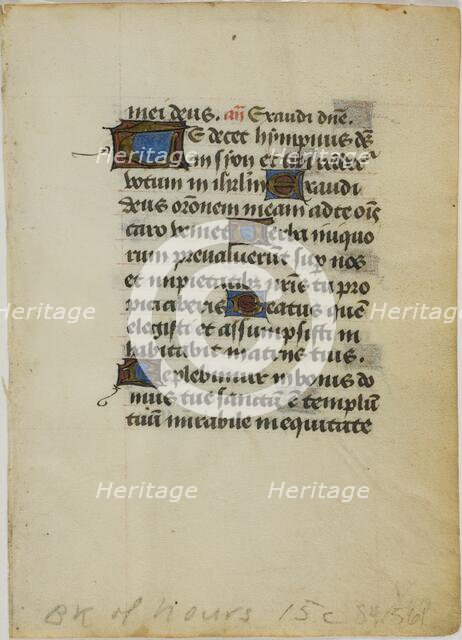 mei deus. añ Exaudi dñe.
Te decet hympnus ds̄
in sion et tibi reddet̄
votum in ihrl̄m Exaudi
deus orōnem meam ad te oīs
caro veniet Verba iniquo
rum preualuerūt sup nos
et impietatibꝫ nr̄is tu pro
piciaberis Beatus quem
elegisti et assumpsisti in
habitabit in atriis tuis.
Replebimur in bonis do
mus tue sanctum ē templum
tuū mirabile in equitate
Bk of hours 15c
Heritage
Heritage
Heritage
Heritage
Heritage
Heritage
Heritage
Heritage